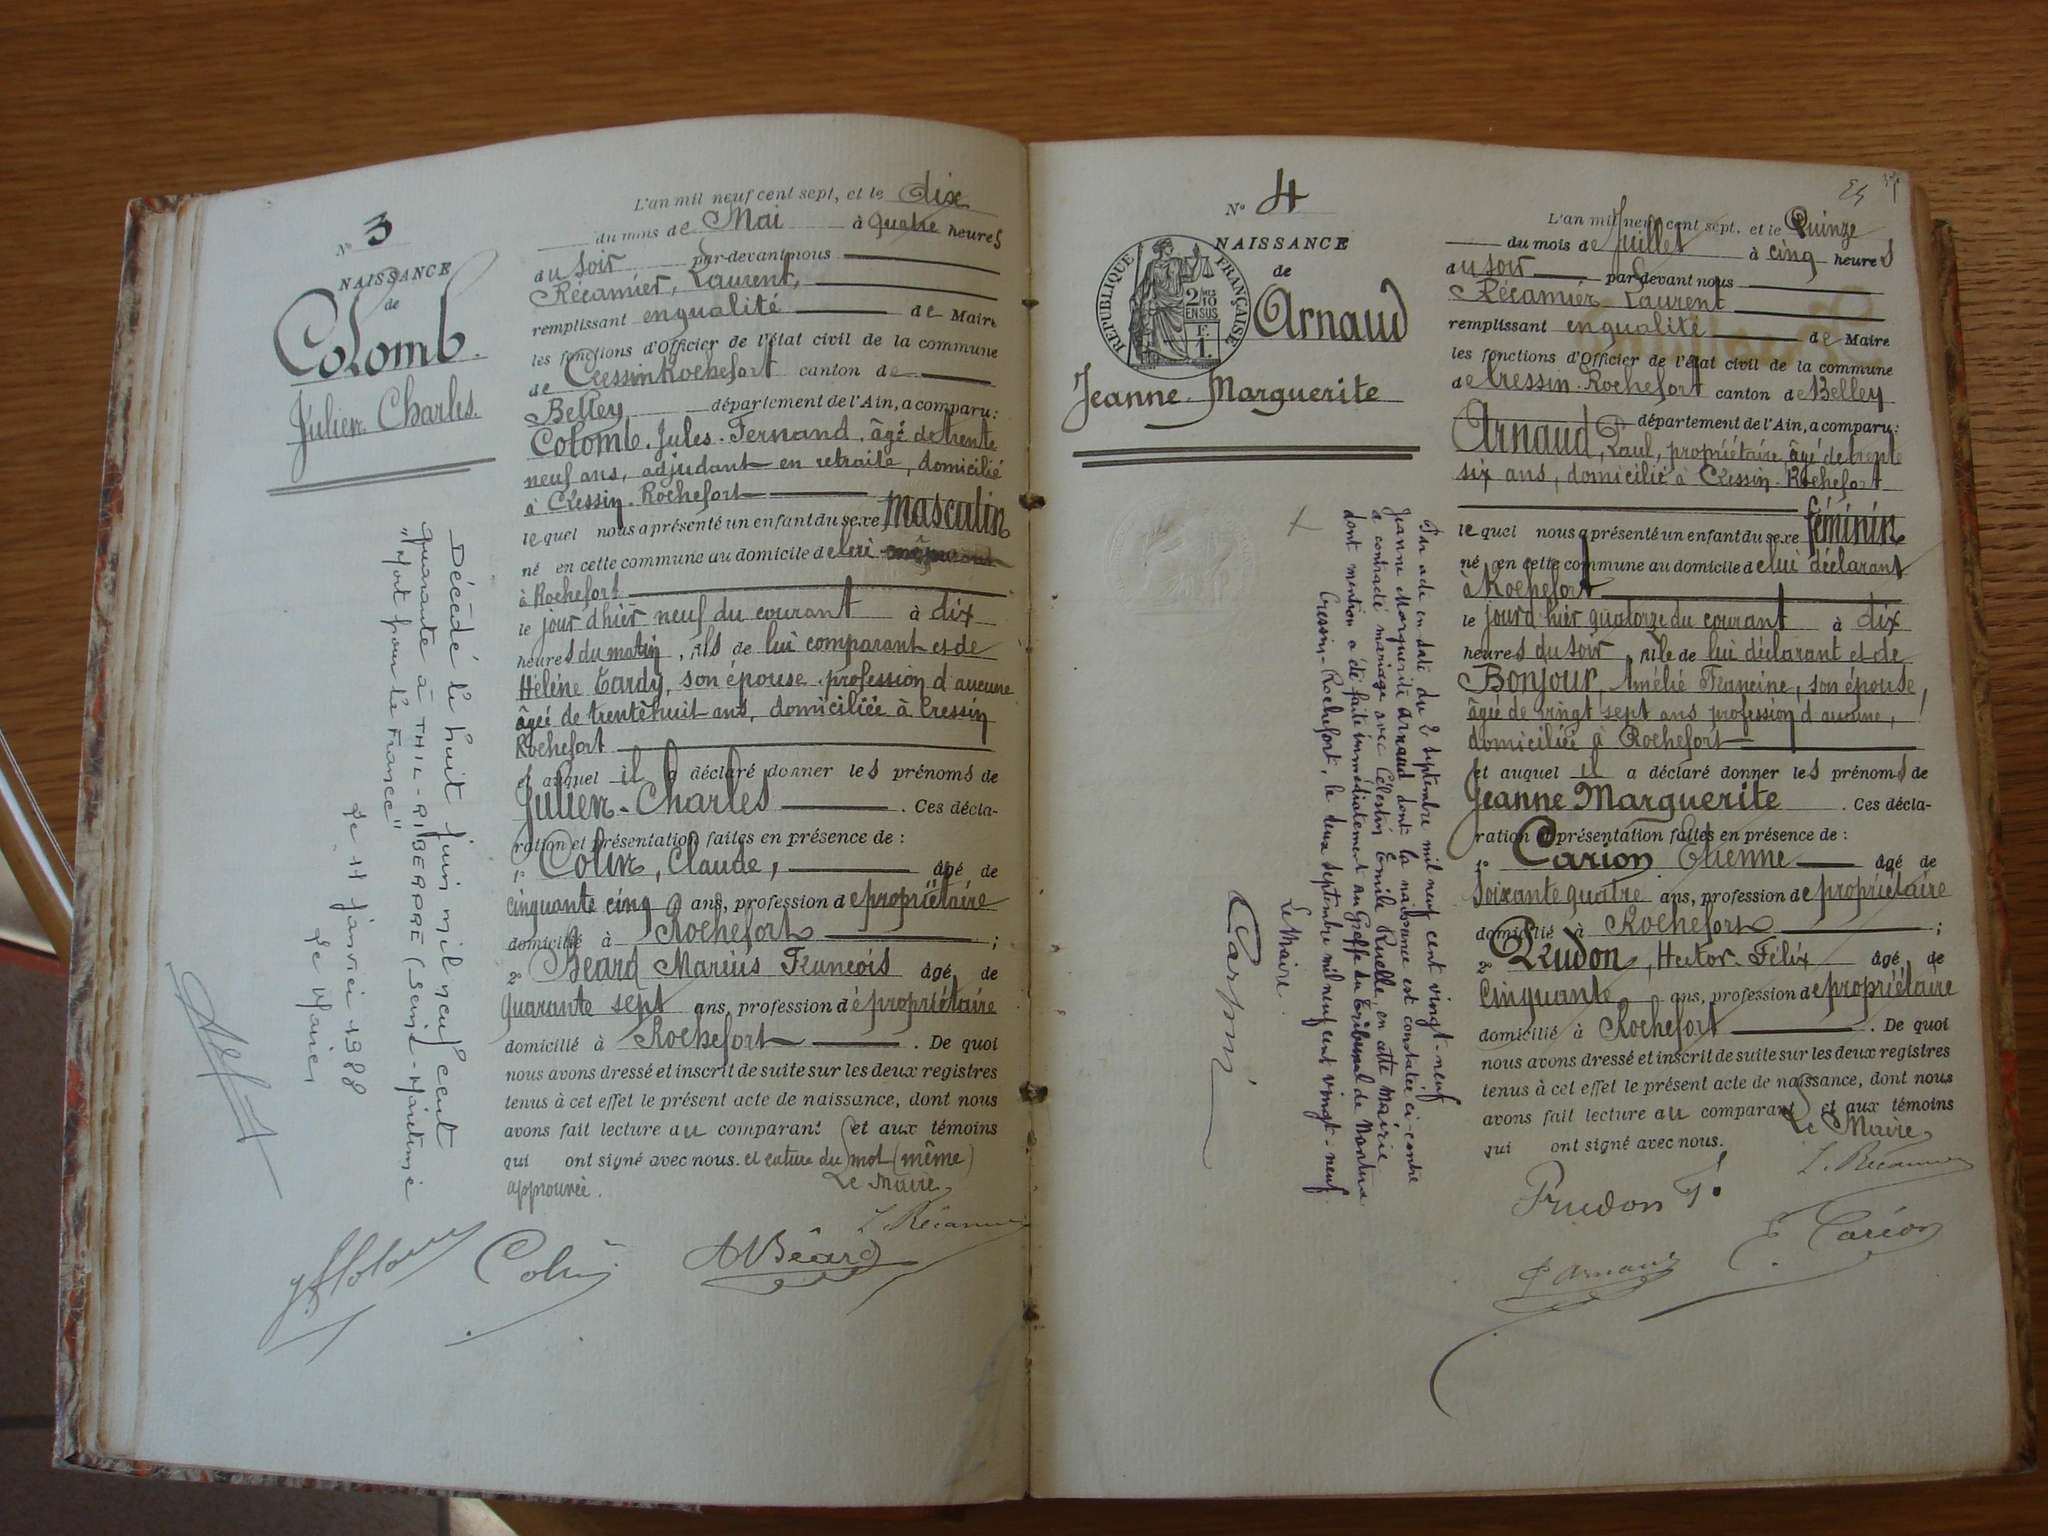 N° 3
NAISSANCE
de
Colomb
Julien Charles
L'an mil neuf cent sept, et le dix
du mois de Mai à quatre heures
du soir par-devant nous
Récamier, Laurent,
remplissant en qualité de Maire
les fonctions d'Officier de l'état civil de la commune
de Cressin Rochefort canton de
Belley département de l'Ain, a comparu:
Colomb Jules Fernand, âgé de trente
neuf ans, adjudant en retraite, domicilié
à Cressin-Rochefort
lequel nous a présenté un enfant du sexe masculin
né en cette commune au domicile de
à Rochefort
le jour d'hier neuf du courant à dix
heures du matin, fils de lui comparant et de
Hélène Tardy, son épouse profession d'aucune
âgée de trente huit ans, domiciliée à Cressin
Rochefort
et auquel il a déclaré donner les prénoms de
Julien-Charles. Ces décla-
ration et présentation faites en présence de :
1° Colin, Claude, âgé de
cinquante cinq ans, profession de propriétaire
domicilié à Rochefort ;
2° Béard Marius François âgé de
quarante sept ans, profession de propriétaire
domicilié à Rochefort. De quoi
nous avons dressé et inscrit de suite sur les deux registres
tenus à cet effet le présent acte de naissance, dont nous
avons fait lecture au comparant et aux témoins
qui ont signé avec nous. et rature du mot (même)
approuvée.
Le Maire,
L. Récamier
Colin
Béard
Décédé le huit juin mil neuf cent
quarante à THIL-RIBERPRE (Seine-Maritime
"Mort pour la France"
Le 11 janvier 1988
Le Maire,
N° 4
NAISSANCE
de
Arnaud
Jeanne Marguerite
RÉPUBLIQUE FRANÇAISE
2/10
EN SUS
F.
1.
L'an mil neuf cent sept, et le Quinze
du mois de Juillet à cinq heures
du soir par devant nous
Récamier Laurent
remplissant en qualité de Maire
les fonctions d'Officier de l'état civil de la commune
de Cressin-Rochefort canton de Belley
département de l'Ain, a comparu:
Arnaud, Paul, propriétaire âgé de trente
six ans, domicilié à Cressin-Rochefort
lequel nous a présenté un enfant du sexe féminin
né en cette commune au domicile de lui déclarant
à Rochefort
le jour d'hier quatorze du courant à dix
heures du soir, fille de lui déclarant et de
Bonjour, Amélie Francine, son épouse,
âgée de vingt sept ans profession d'aucune,
domiciliée à Rochefort
et auquel il a déclaré donner les prénoms de
Jeanne Marguerite. Ces décla-
ration et présentation faites en présence de :
1° Carion Etienne âgé de
soixante quatre ans, profession de propriétaire
domicilié à Rochefort ;
2° Prudon, Hector-Félix âgé de
Cinquante ans, profession de propriétaire
domicilié à Rochefort. De quoi
nous avons dressé et inscrit de suite sur les deux registres
tenus à cet effet le présent acte de naissance, dont nous
avons fait lecture au comparant et aux témoins
qui ont signé avec nous.
Le Maire,
L. Récamier
Prudon F.
E. Carion
P Arnaud
Par acte en date du 2 septembre mil neuf cent vingt-neuf
Jeanne Marguerite Arnaud dont la naissance est constatée ci-contre
a contracté mariage avec Célestin Emile Ruelle, en cette Mairie
dont mention a été faite immédiatement au Greffe du Tribunal de Nantua
Cressin-Rochefort, le deux septembre mil neuf cent vingt-neuf.
Le Maire.